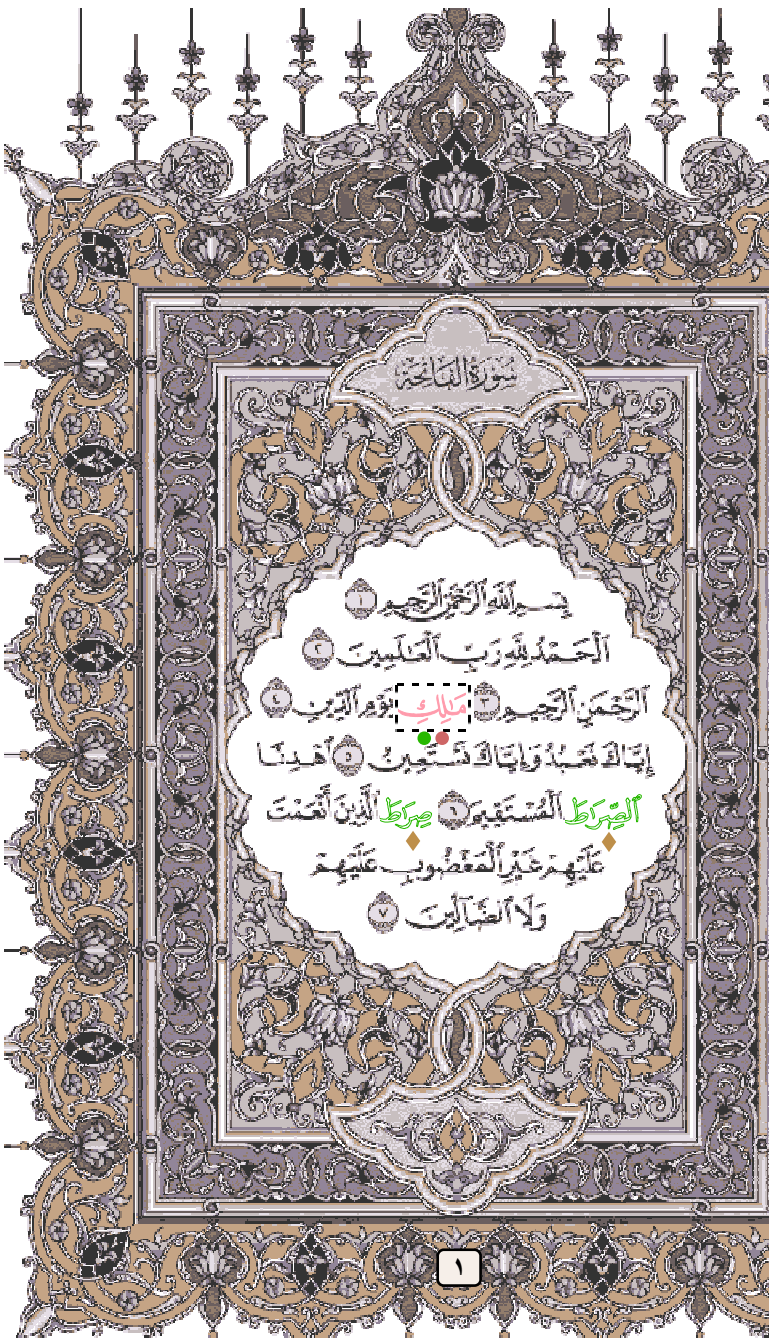 سُورَةُ الْفَاتِحَةِ
بِسْمِ ٱللَّهِ ٱلرَّحْمَٰنِ ٱلرَّحِيمِ ١
ٱلْحَمْدُ لِلَّهِ رَبِّ ٱلْعَٰلَمِينَ ٢
ٱلرَّحْمَٰنِ ٱلرَّحِيمِ ٣ مَٰلِكِ يَوْمِ ٱلدِّينِ ٤
إِيَّاكَ نَعْبُدُ وَإِيَّاكَ نَسْتَعِينُ ٥ ٱهْدِنَا
ٱلصِّرَٰطَ ٱلْمُسْتَقِيمَ ٦ صِرَٰطَ ٱلَّذِينَ أَنْعَمْتَ
عَلَيْهِمْ غَيْرِ ٱلْمَغْضُوبِ عَلَيْهِمْ
وَلَا ٱلضَّآلِّينَ ٧
١